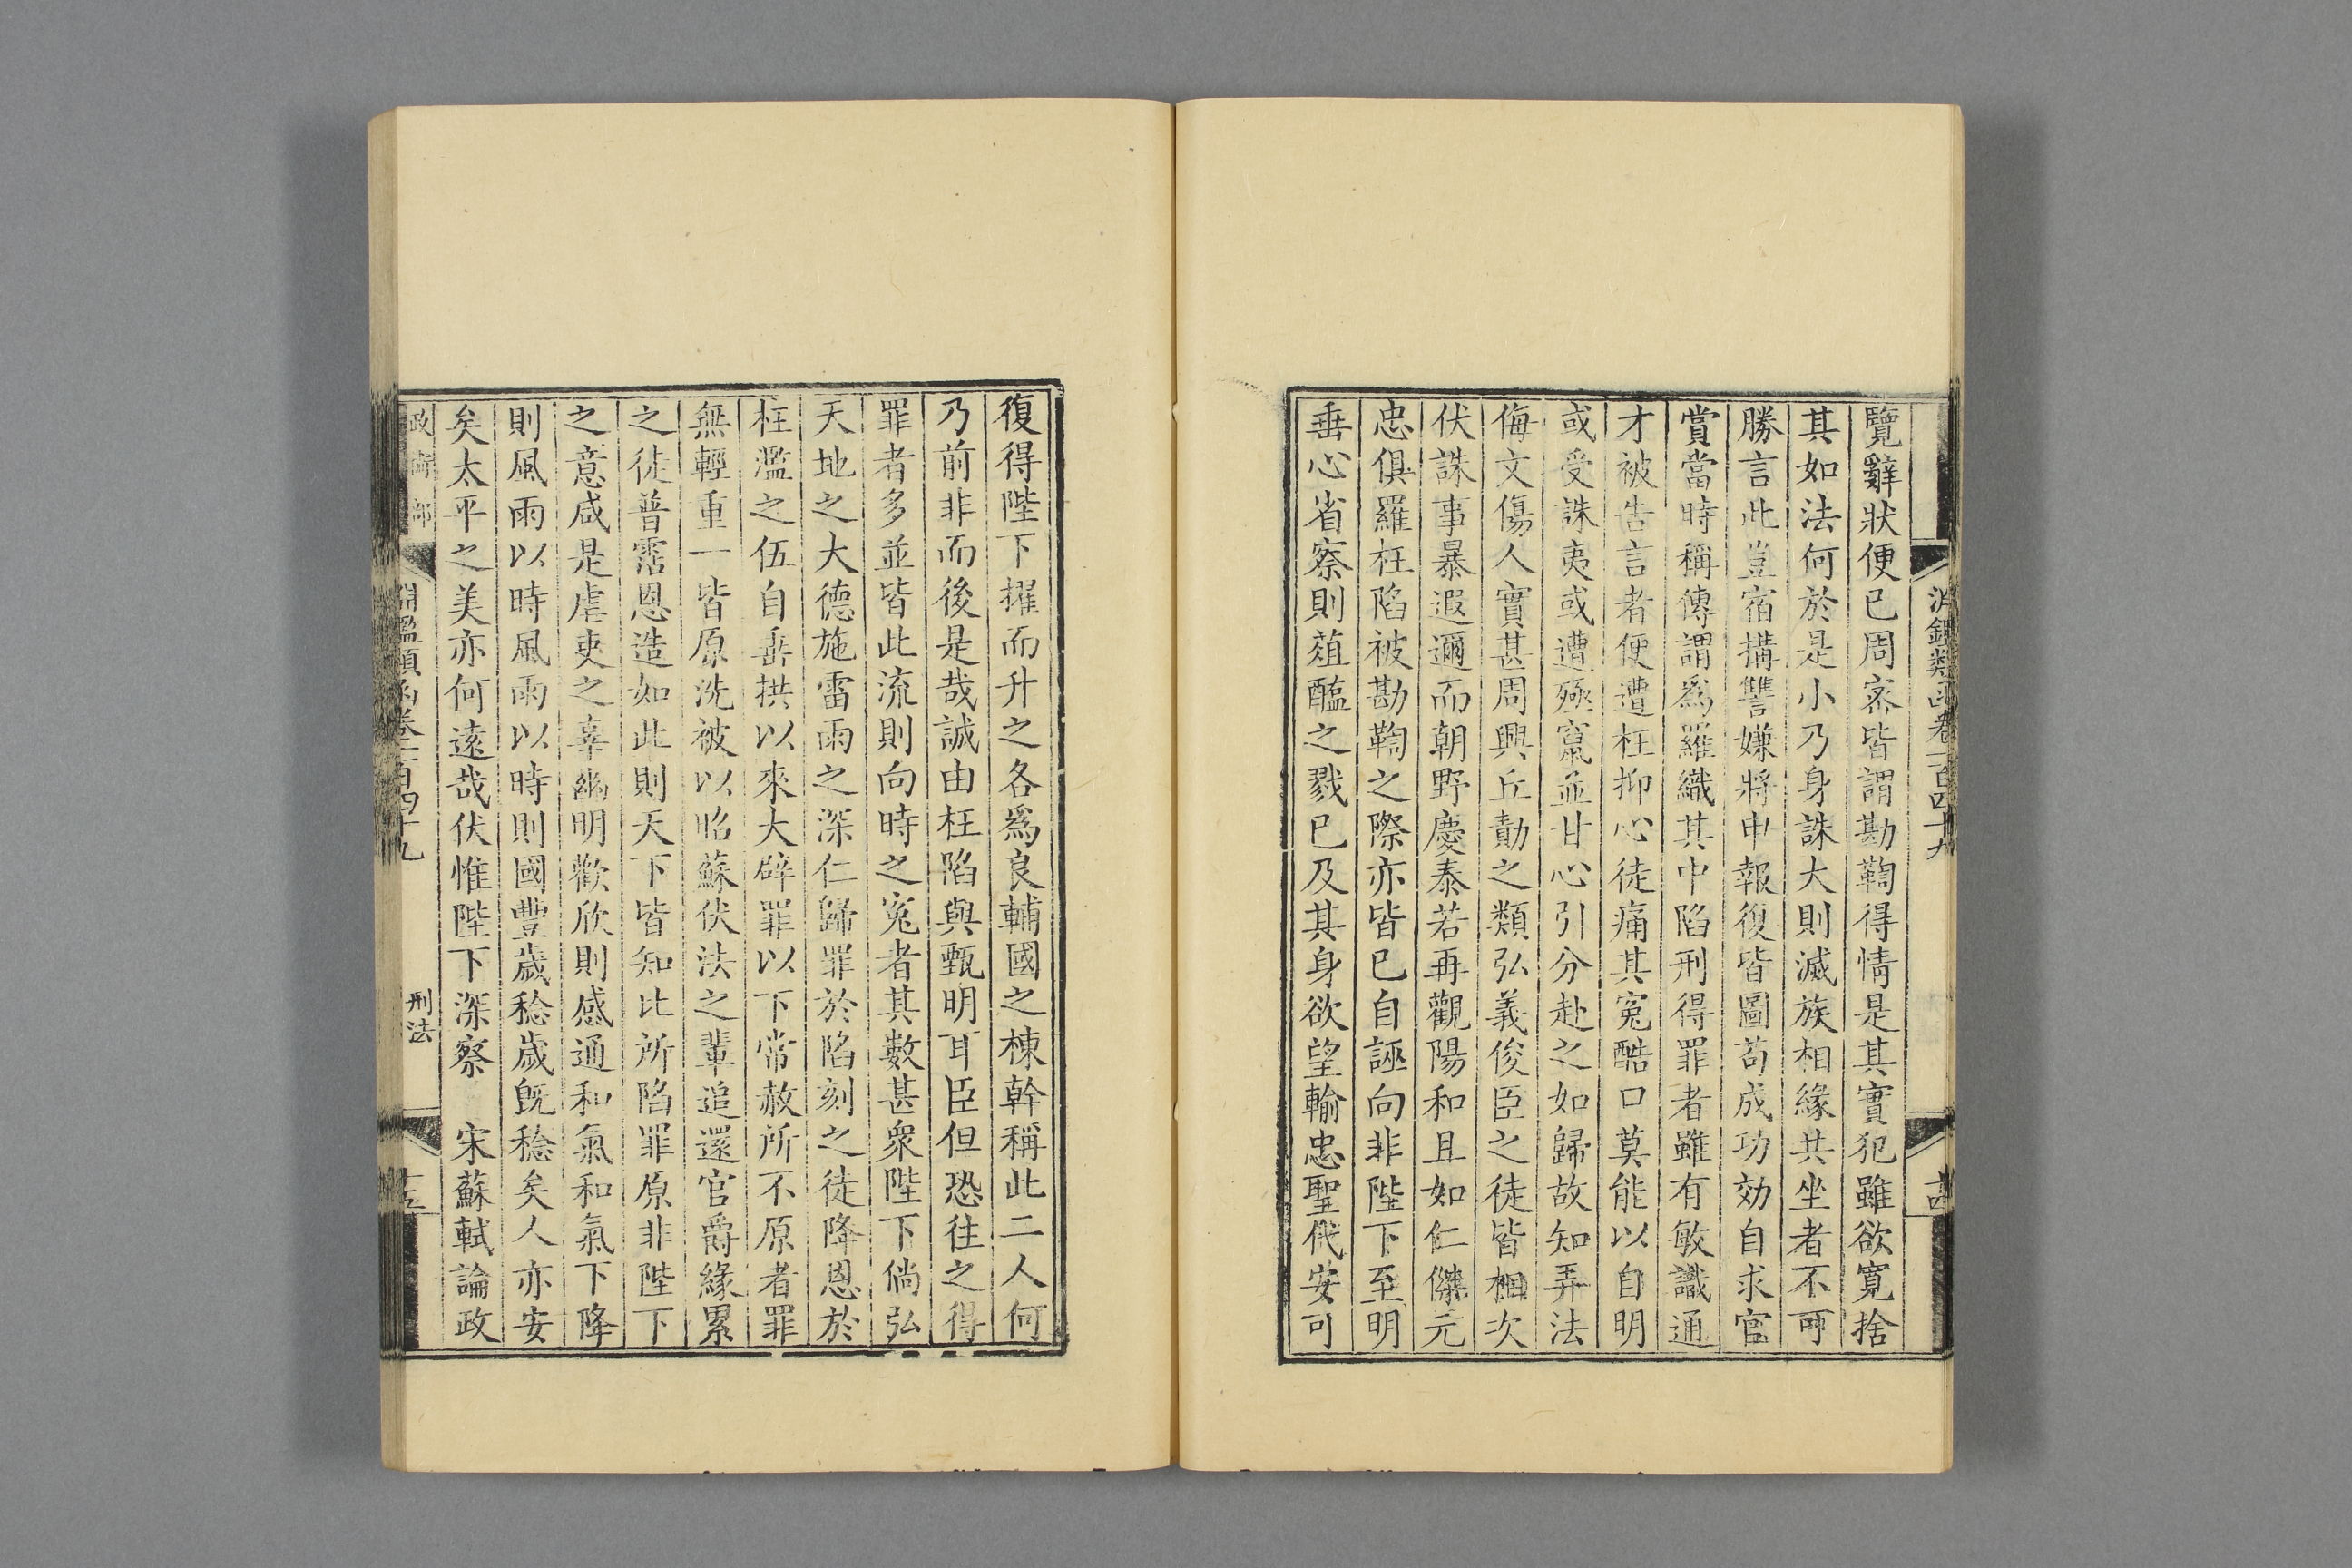 覽辭狀便已周宻皆謂勘鞫得情是其實犯雖欲寛捨
其如法何於是小乃身誅大則滅族相緣共坐者不可
勝言此豈宿搆讐嫌將申報復皆圖苟成功効自求官
賞當時稱傳謂爲羅織其中陷刑得罪者雖有敏識通
才被告言者便遭枉抑心徒痛其冤酷口莫能以自明
或受誅夷或遭殛竄並甘心引分赴之如歸故知弄法
侮文傷人實甚周興丘勣之類弘義俊臣之徒皆相次
伏誅事暴遐邇而朝野慶泰若再觀陽和且如仁傑元
忠俱羅枉陷被勘鞫之際亦皆已自誣向非陛下至明
垂心省察則葅醢之戮已及其身欲望輸忠聖代安可
復得陛下擢而升之各爲良輔國之棟幹稱此二人何
乃前非而後是哉誠由枉陷與甄明耳臣但恐往之得
罪者多並皆此流則向時之冤者其數甚衆陛下倘弘
天地之大德施雷雨之深仁歸罪於陷刻之徒降恩於
枉濫之伍自垂拱以來大辟罪以下常赦所不原者罪
無輕重一皆原洗被以昭蘇伏法之輩追還官爵緣累
之徒普霑恩造如此則天下皆知比所陷罪原非陛下
之意咸是虐吏之辜幽明歡欣則感通和氣和氣下降
則風雨以時風雨以時則國豐歲稔歲旣稔矣人亦安
矣太平之美亦何遠哉伏惟陛下深察　宋蘇軾論政
政術部 淵鑑類函卷一百四十九 刑法 十五